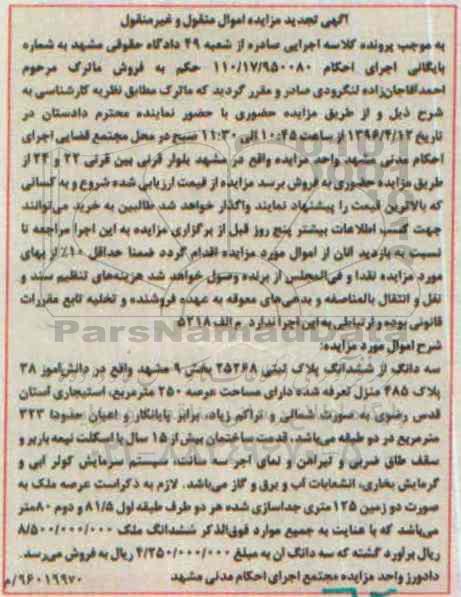 آگهی تجدید مزایده اموال منقول و غیرمنقول
به موجب پرونده کلاسه اجرایی صادره از شعبه ۴۹ دادگاه حقوقی مشهد به شماره
بایگانی اجرای احکام ۱۱۰/۱۷/۹۵۰۰۸۰ حکم به فروش ماترک مرحوم
احمدآقاجان‌زاده لنگرودی صادر و مقرر گردید که ماترک مطابق نظریه کارشناسی به
شرح ذیل و از طریق مزایده حضوری با حضور نماینده محترم دادستان در
تاریخ ۱۳۹۶/۴/۱۲ از ساعت ۱۰:۴۵ الی ۱۱:۳۰ صبح در محل مجتمع قضایی اجرای
احکام مدنی مشهد واحد مزایده واقع در مشهد بلوار قرنی بین قرنی ۲۲ و ۲۴ از
طریق مزایده حضوری به فروش برسد مزایده از قیمت ارزیابی شده شروع و به کسانی
که بالاترین قیمت را پیشنهاد نمایند واگذار خواهد شد طالبین به خرید می‌توانند
جهت کسب اطلاعات بیشتر پنج روز قبل از برگزاری مزایده به این اجرا مراجعه تا
نسبت به بازدید آنان از اموال مورد مزایده اقدام گردد ضمنا حداقل ۱۰٪ از بهای
مورد مزایده نقدا و فی‌المجلس از برنده وصول خواهد شد هزینه‌های تنظیم سند و
نقل و انتقال بالمناصفه و بدهی‌های معوقه به عهده فروشنده و تخلیه تابع مقررات
قانونی بوده و ارتباطی به این اجرا ندارد. م الف ۵۲۱۸
شرح اموال مورد مزایده:
سه دانگ از ششدانگ پلاک ثبتی ۲۵۲۶۸ بخش ۹ مشهد واقع در دانش‌آموز ۳۸
پلاک ۲۸۵ منزل تعرفه شده دارای مساحت عرصه ۲۵۰ مترمربع، استیجاری آستان
قدس رضوی به صورت شمالی و تراکم زیاد، برابر پایانکار و اعیان حدودا ۳۲۳
مترمربع در دو طبقه می‌باشد، قدمت ساختمان بیش از ۱۵ سال با اسکلت نیمه باربر و
سقف طاق ضربی و تیرآهن و نمای آجر سه سانت، سیستم سرمایش کولر آبی و
گرمایش بخاری، انشعابات آب و برق و گاز می‌باشد. لازم به ذکراست عرصه ملک به
صورت دو زمین ۱۲۵ متری جداسازی شده هر دو طرف طبقه اول ۸۱/۵ و دوم ۸۰متر
می‌باشد که با عنایت به جمیع موارد فوق‌الذکر ششدانگ ملک ۸/۵۰۰/۰۰۰/۰۰۰
ریال برآورد گشته که سه دانگ آن به مبلغ ۴/۲۵۰/۰۰۰/۰۰۰ ریال به فروش می‌رسد.
دادورز واحد مزایده مجتمع اجرای احکام مدنی مشهد ۹۶۰۱۹۹۷۰/م
ParsNamadData